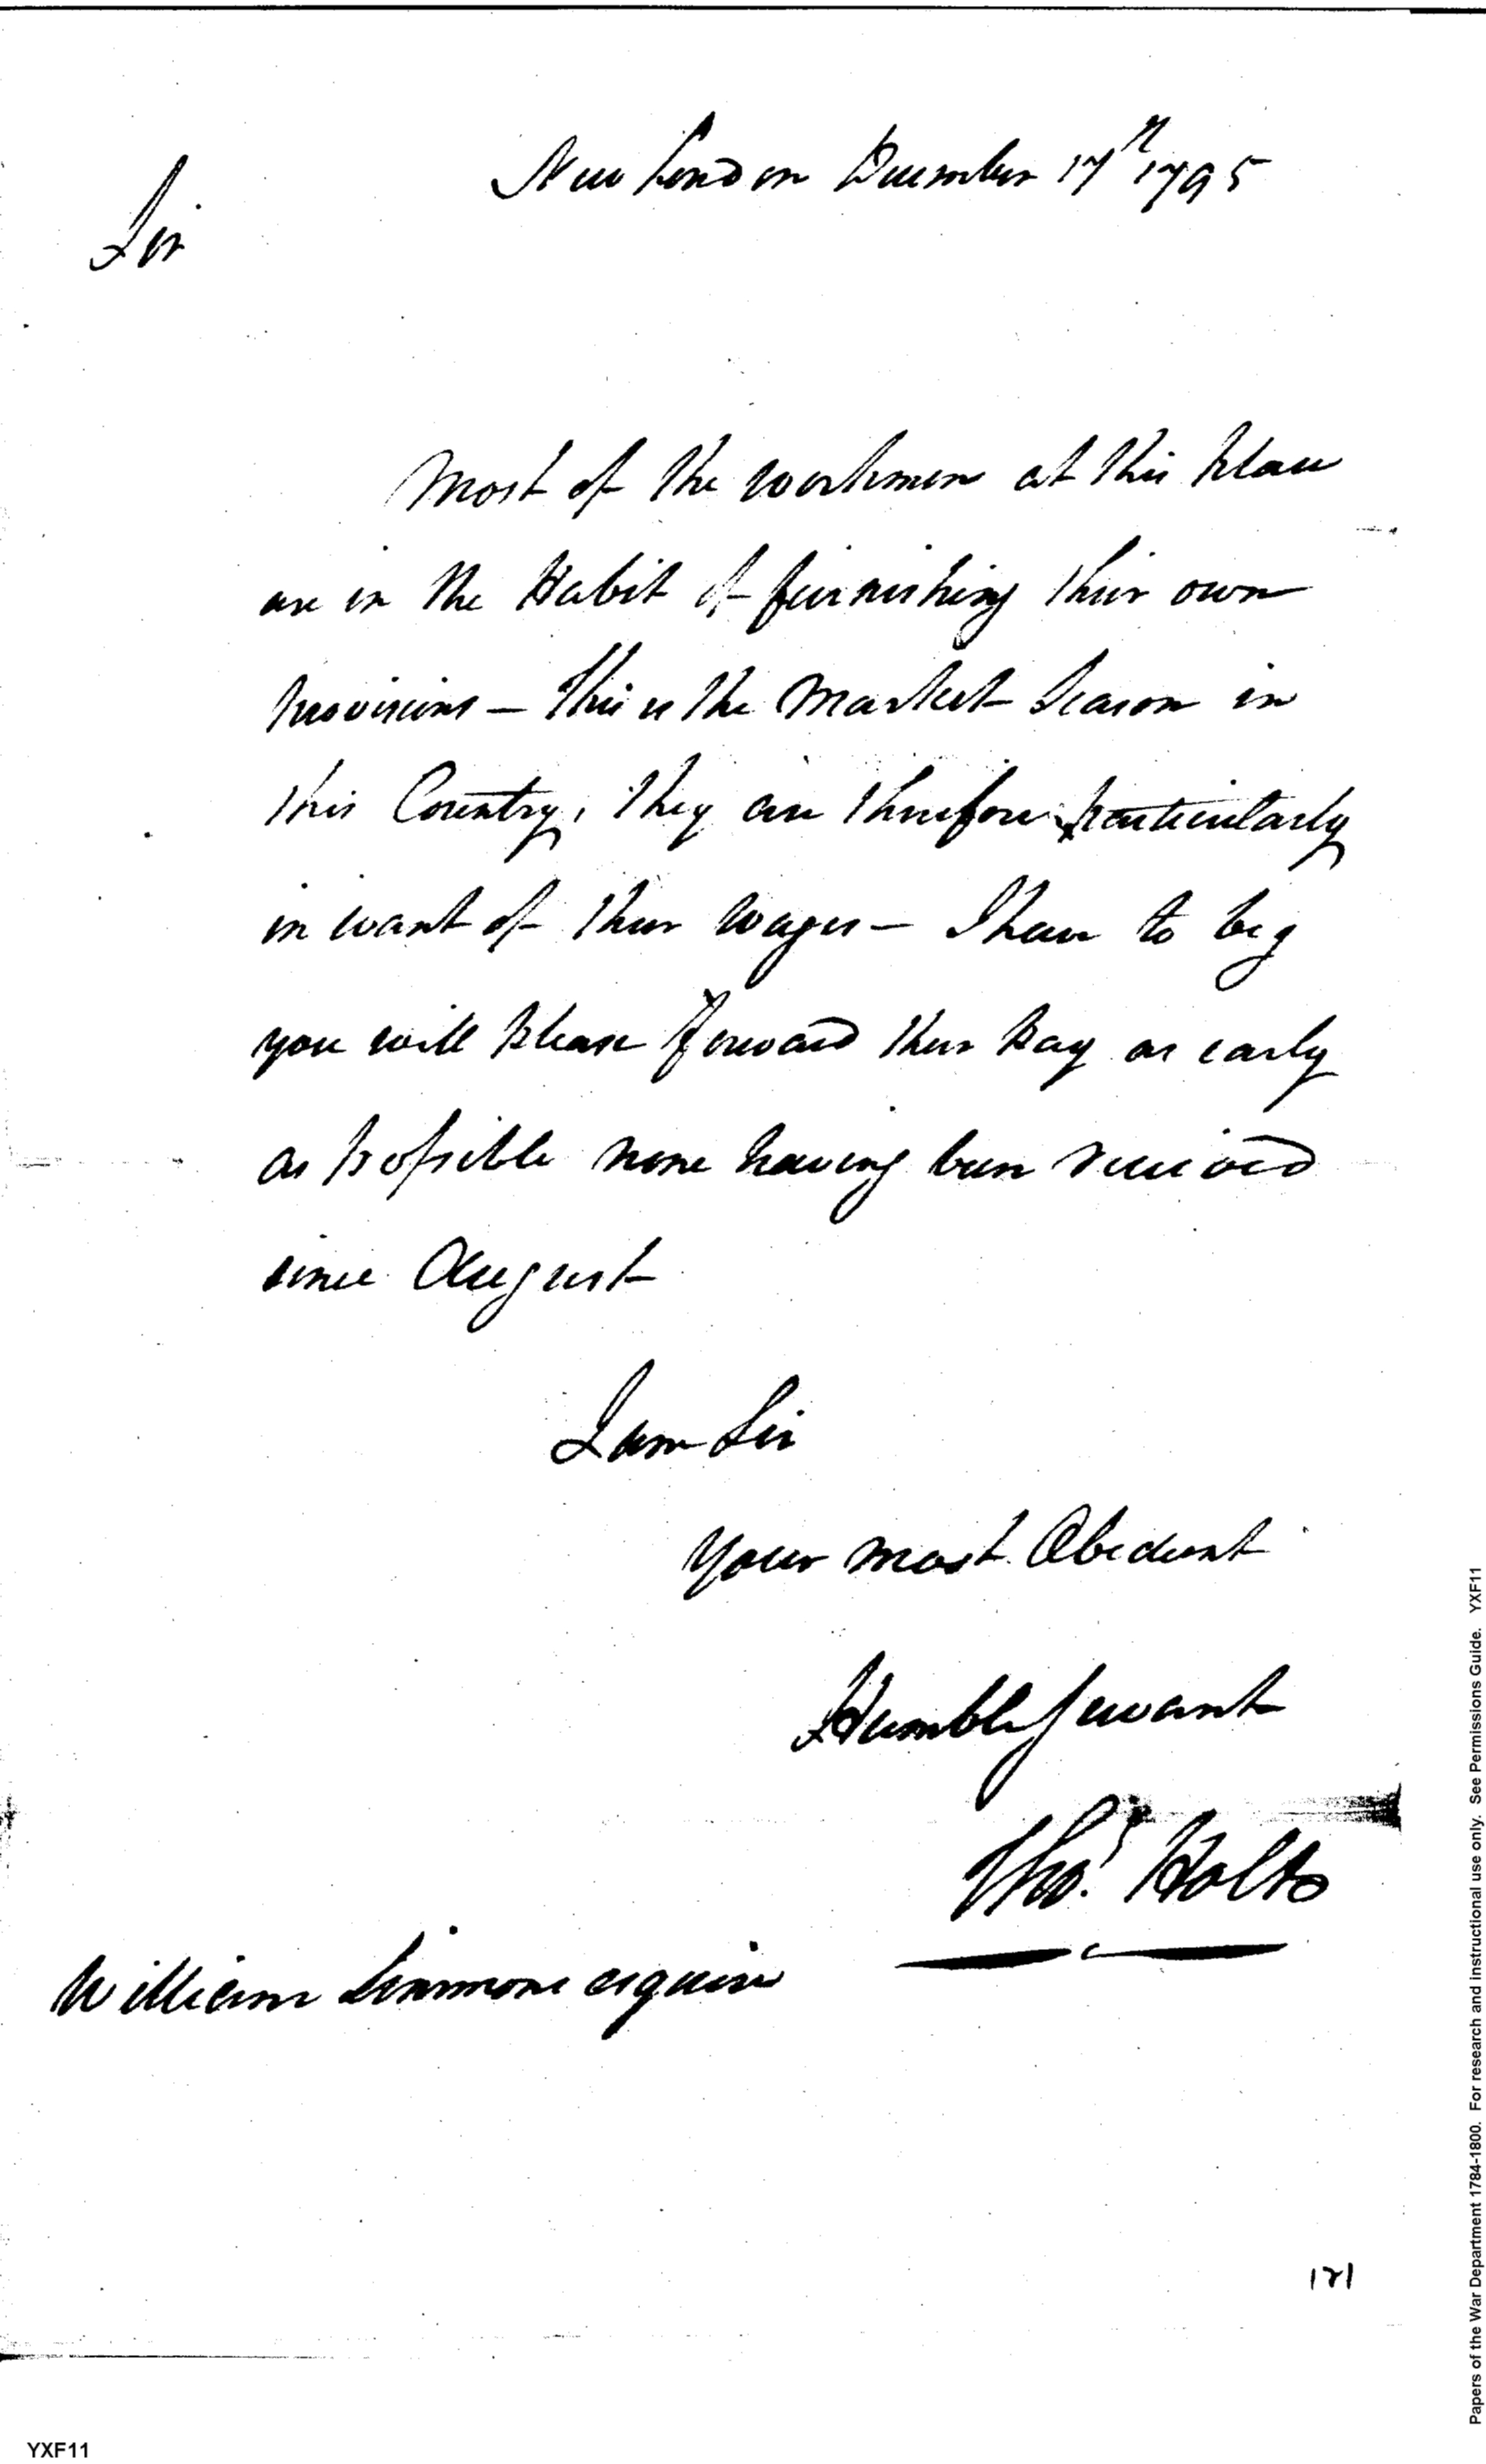 New London December 17th 1795
Sir
Most of the workmen at this place
are in the Habit of furnishing their own
provisions – This is the Market Season in
this Country, they are therefore particularly
in want of their wages – I have to beg
you will please forward their pay as early
as possible none having been received
since August
I am Sir
Your most Obedient
Humble Servant
Thos. Holt
William Simmons esquire
121
YXF11
Papers of the War Department 1784-1800. For research and instructional use only. See Permissions Guide. YXF11